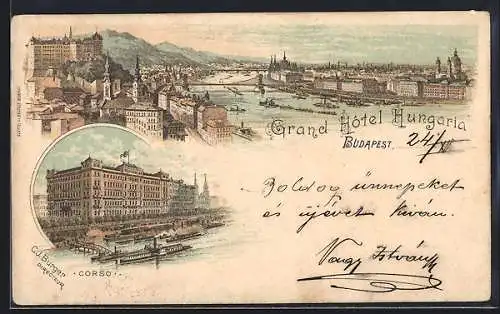 Grand Hôtel Hungaria
BUDAPEST.
24/XII
Boldog ünnepeket
és újévet kíván.
Nagy István
C.J. Burger
DIRECTEUR
· CORSO ·